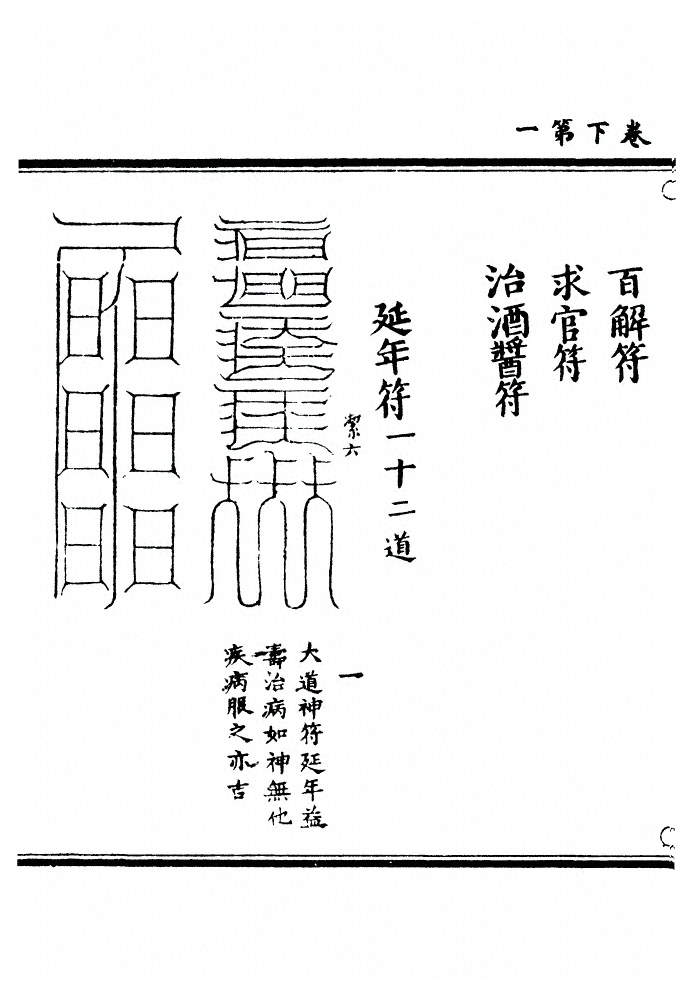 卷下第一
百解符
求官符
治酒醬符
延年符一十二道
絜六
一
大道神符延年益
壽治病如神無他
疾病服之亦吉